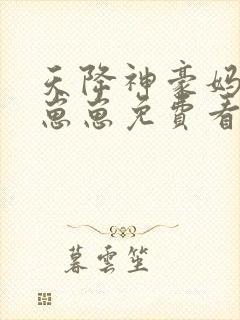 天降神豪妈
崽崽免费看
暮雲笙